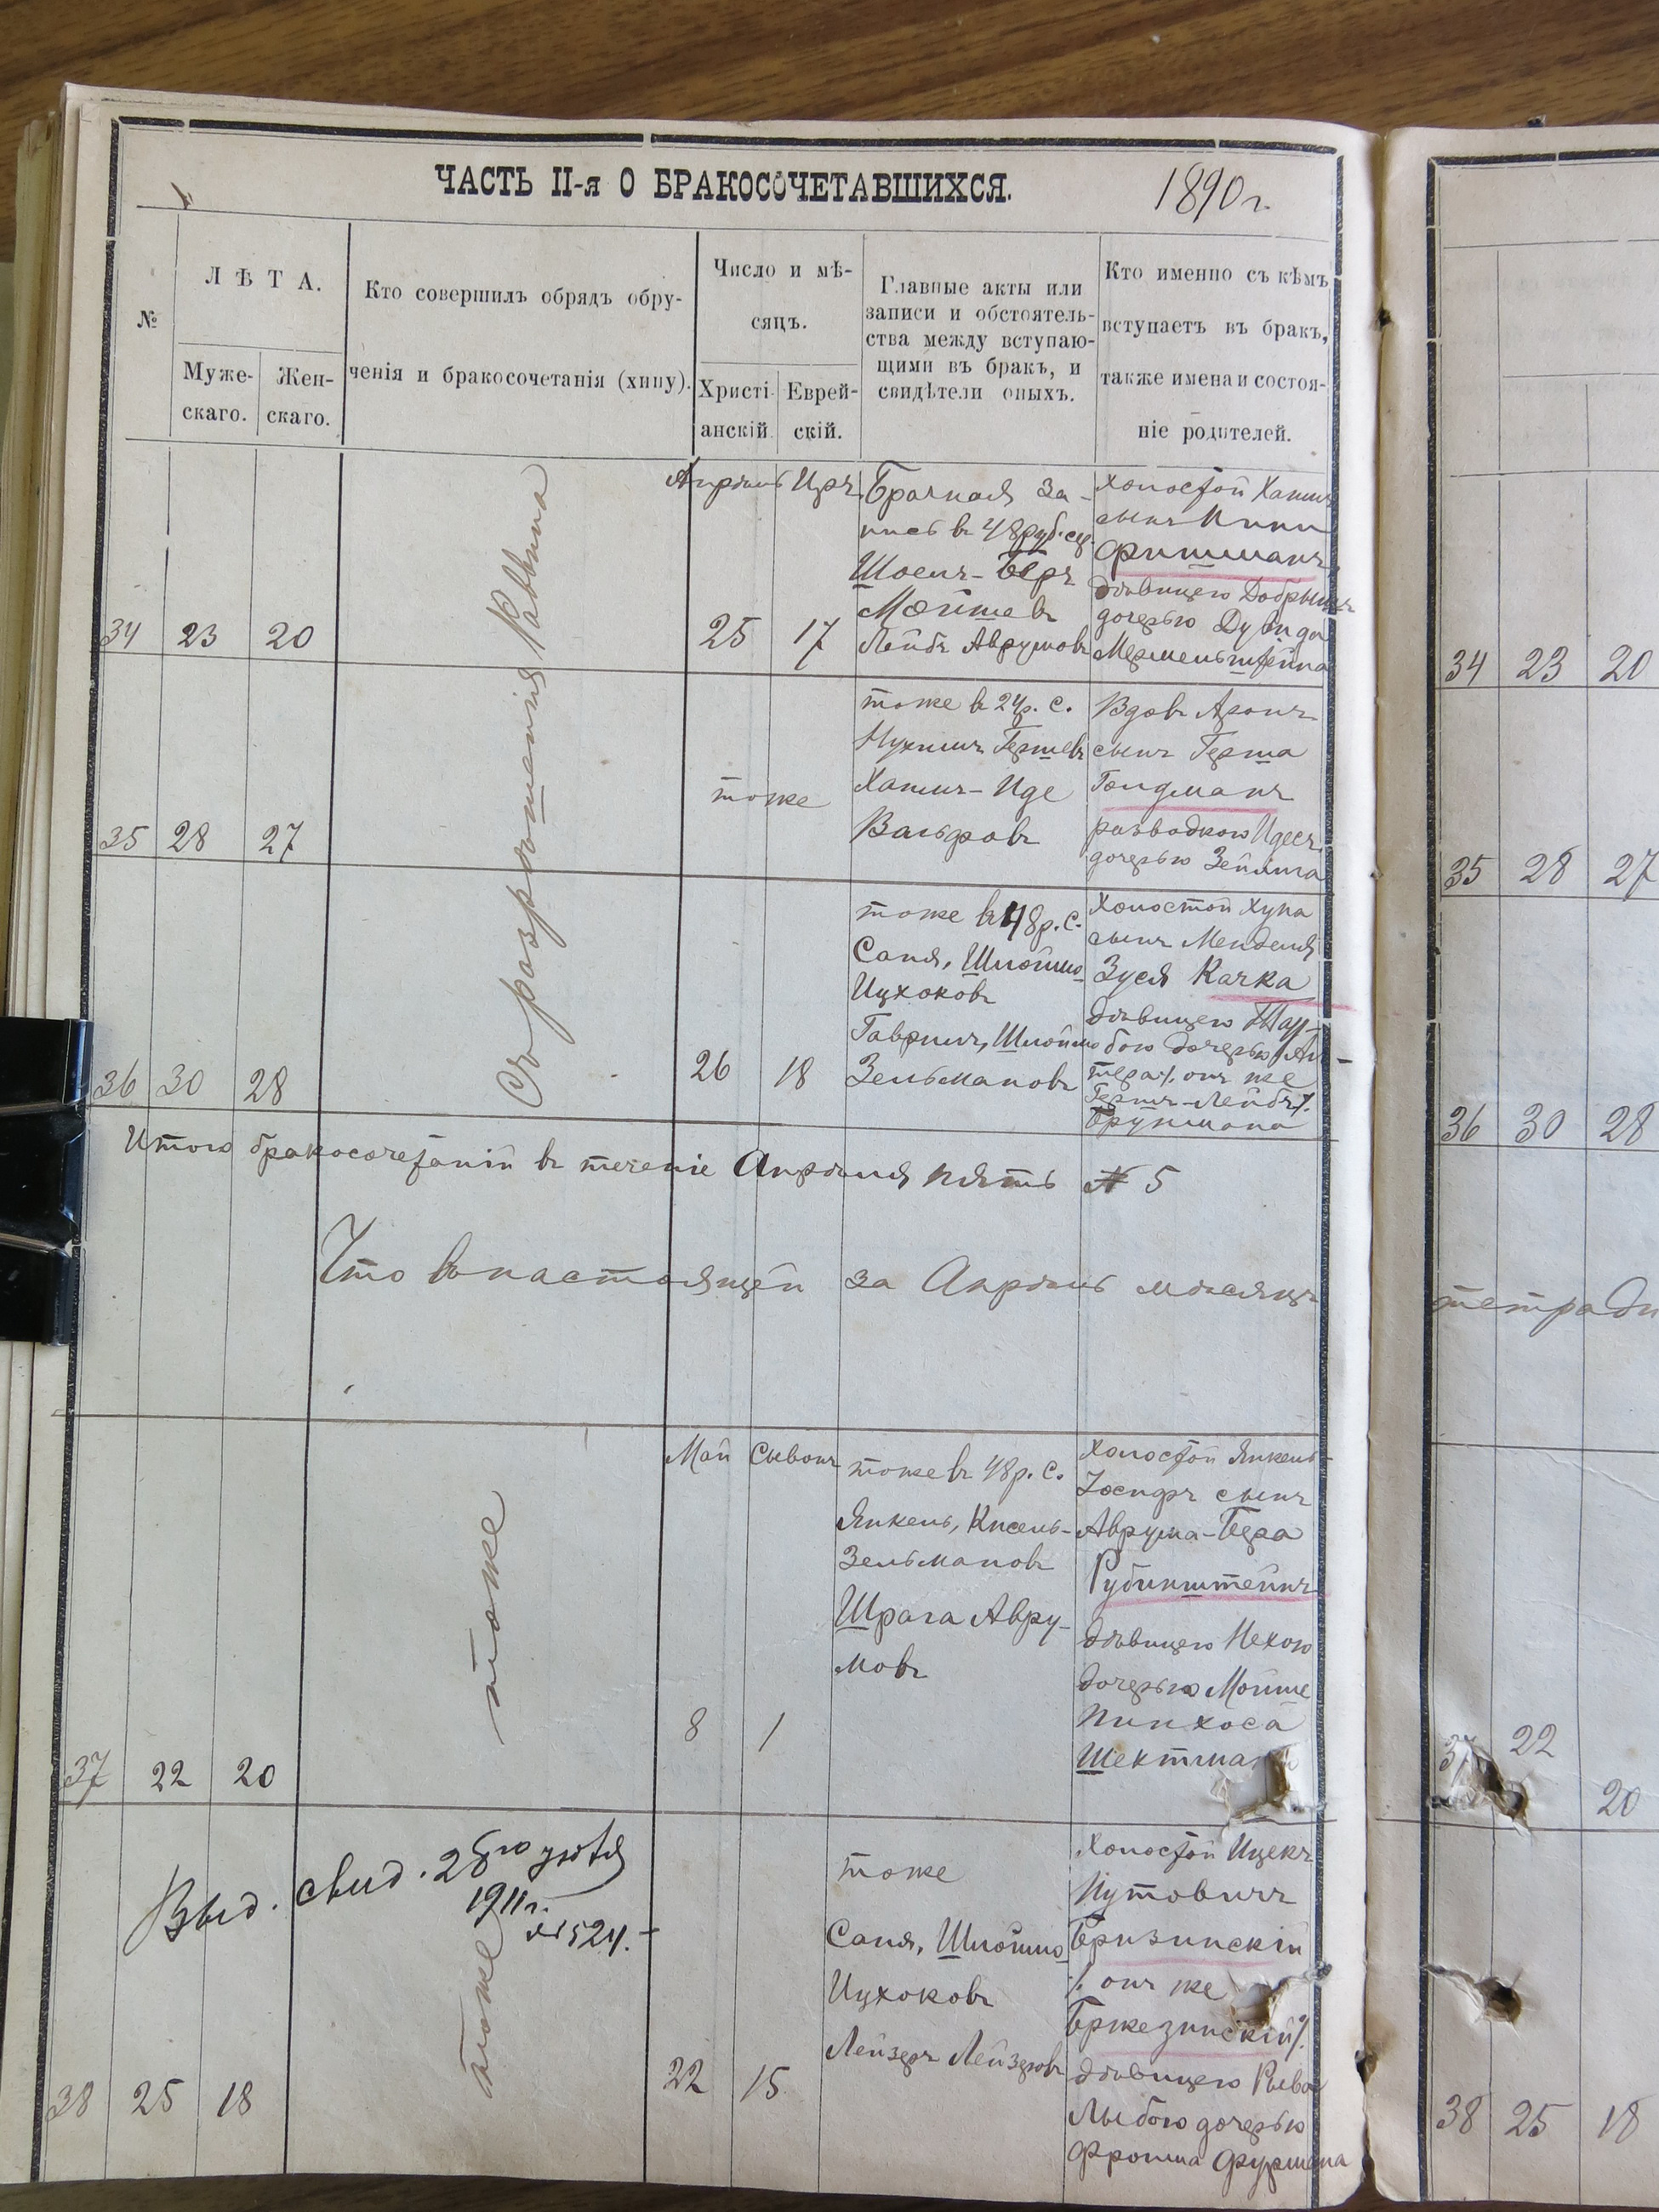 ЧАСТЬ II-я О БРАКОСОЧЕТАВШИХСЯ.
1890 г.
№
ЛѢТА.
Муже-
скаго.
Жен-
скаго.
Кто совершилъ обрядъ обру-
ченія и бракосочетанія (хипу).
Число и мѣ-
сяцъ.
Христі-
анскій.
Еврей-
скій.
Главные акты или
записи и обстоятель-
ства между вступаю-
щими въ бракъ, и
свидѣтели оныхъ.
Кто именно съ кѣмъ
вступаетъ въ бракъ,
также имена и состоя-
ніе родителей.
Съ разрѣшенія Раввина
34 23 20
Апрѣль Иръ
25 17
Брачная за-
пись в 48 руб. сер.
Шоелъ-Беръ
Мойшевъ
Лейбъ Аврумовъ
холостой Хаимъ
сынъ
Фишманъ
дѣвицею
дочерью
Мермельштейна
35 28 27
тоже
тоже в 24 р. с.
Нухимъ Гершевъ
Хаимъ-Иде
Вольфовъ
Вдовъ Аронъ
сынъ Герша
Гольдманъ
разводкою Идесъ
дочерью Зейлига
36 30 28
26 18
тоже в 48 р. с.
Саня, Шлоймо
Ицхоковъ
Гаврилъ, Шлоймо
Зельмановъ
Холостой Хуна
сынъ Менделя
Зуся Качка
дѣвицею Тау-
бою дочерью Аль-
тера /. онъ же
Гершъ-Лейбъ /.
Итого бракосочетаній в теченіе Апрѣля пять № 5
Что в настоящей за Апрѣль мѣсяцъ
тетради
37 22 20
тоже
Май Сывонъ
8 1
тоже в 48 р. с.
Янкель, Кисель-
Зельмановъ
Шрага Авру-
мовъ
Холостой Янкель-
Іосифъ сынъ
Аврума-Бера
Рубинштейнъ
дѣвицею Нехою
дочерью Мойше
Пинхоса
Шехтмана
Выд. свид. 28го
1911 г.
№ 524.
38 25 18
тоже
22 15
тоже
Саня, Шлоймо
Ицхоковъ
Лейзеръ Лейзеровъ
Холостой Ицекъ
Бризинскій
/. онъ же
Бржезинскій /.
дѣвицею
дочерью
Фроима Фурмана
34 23 20
35 28 27
36 30 28
37 22
20
38 25 18